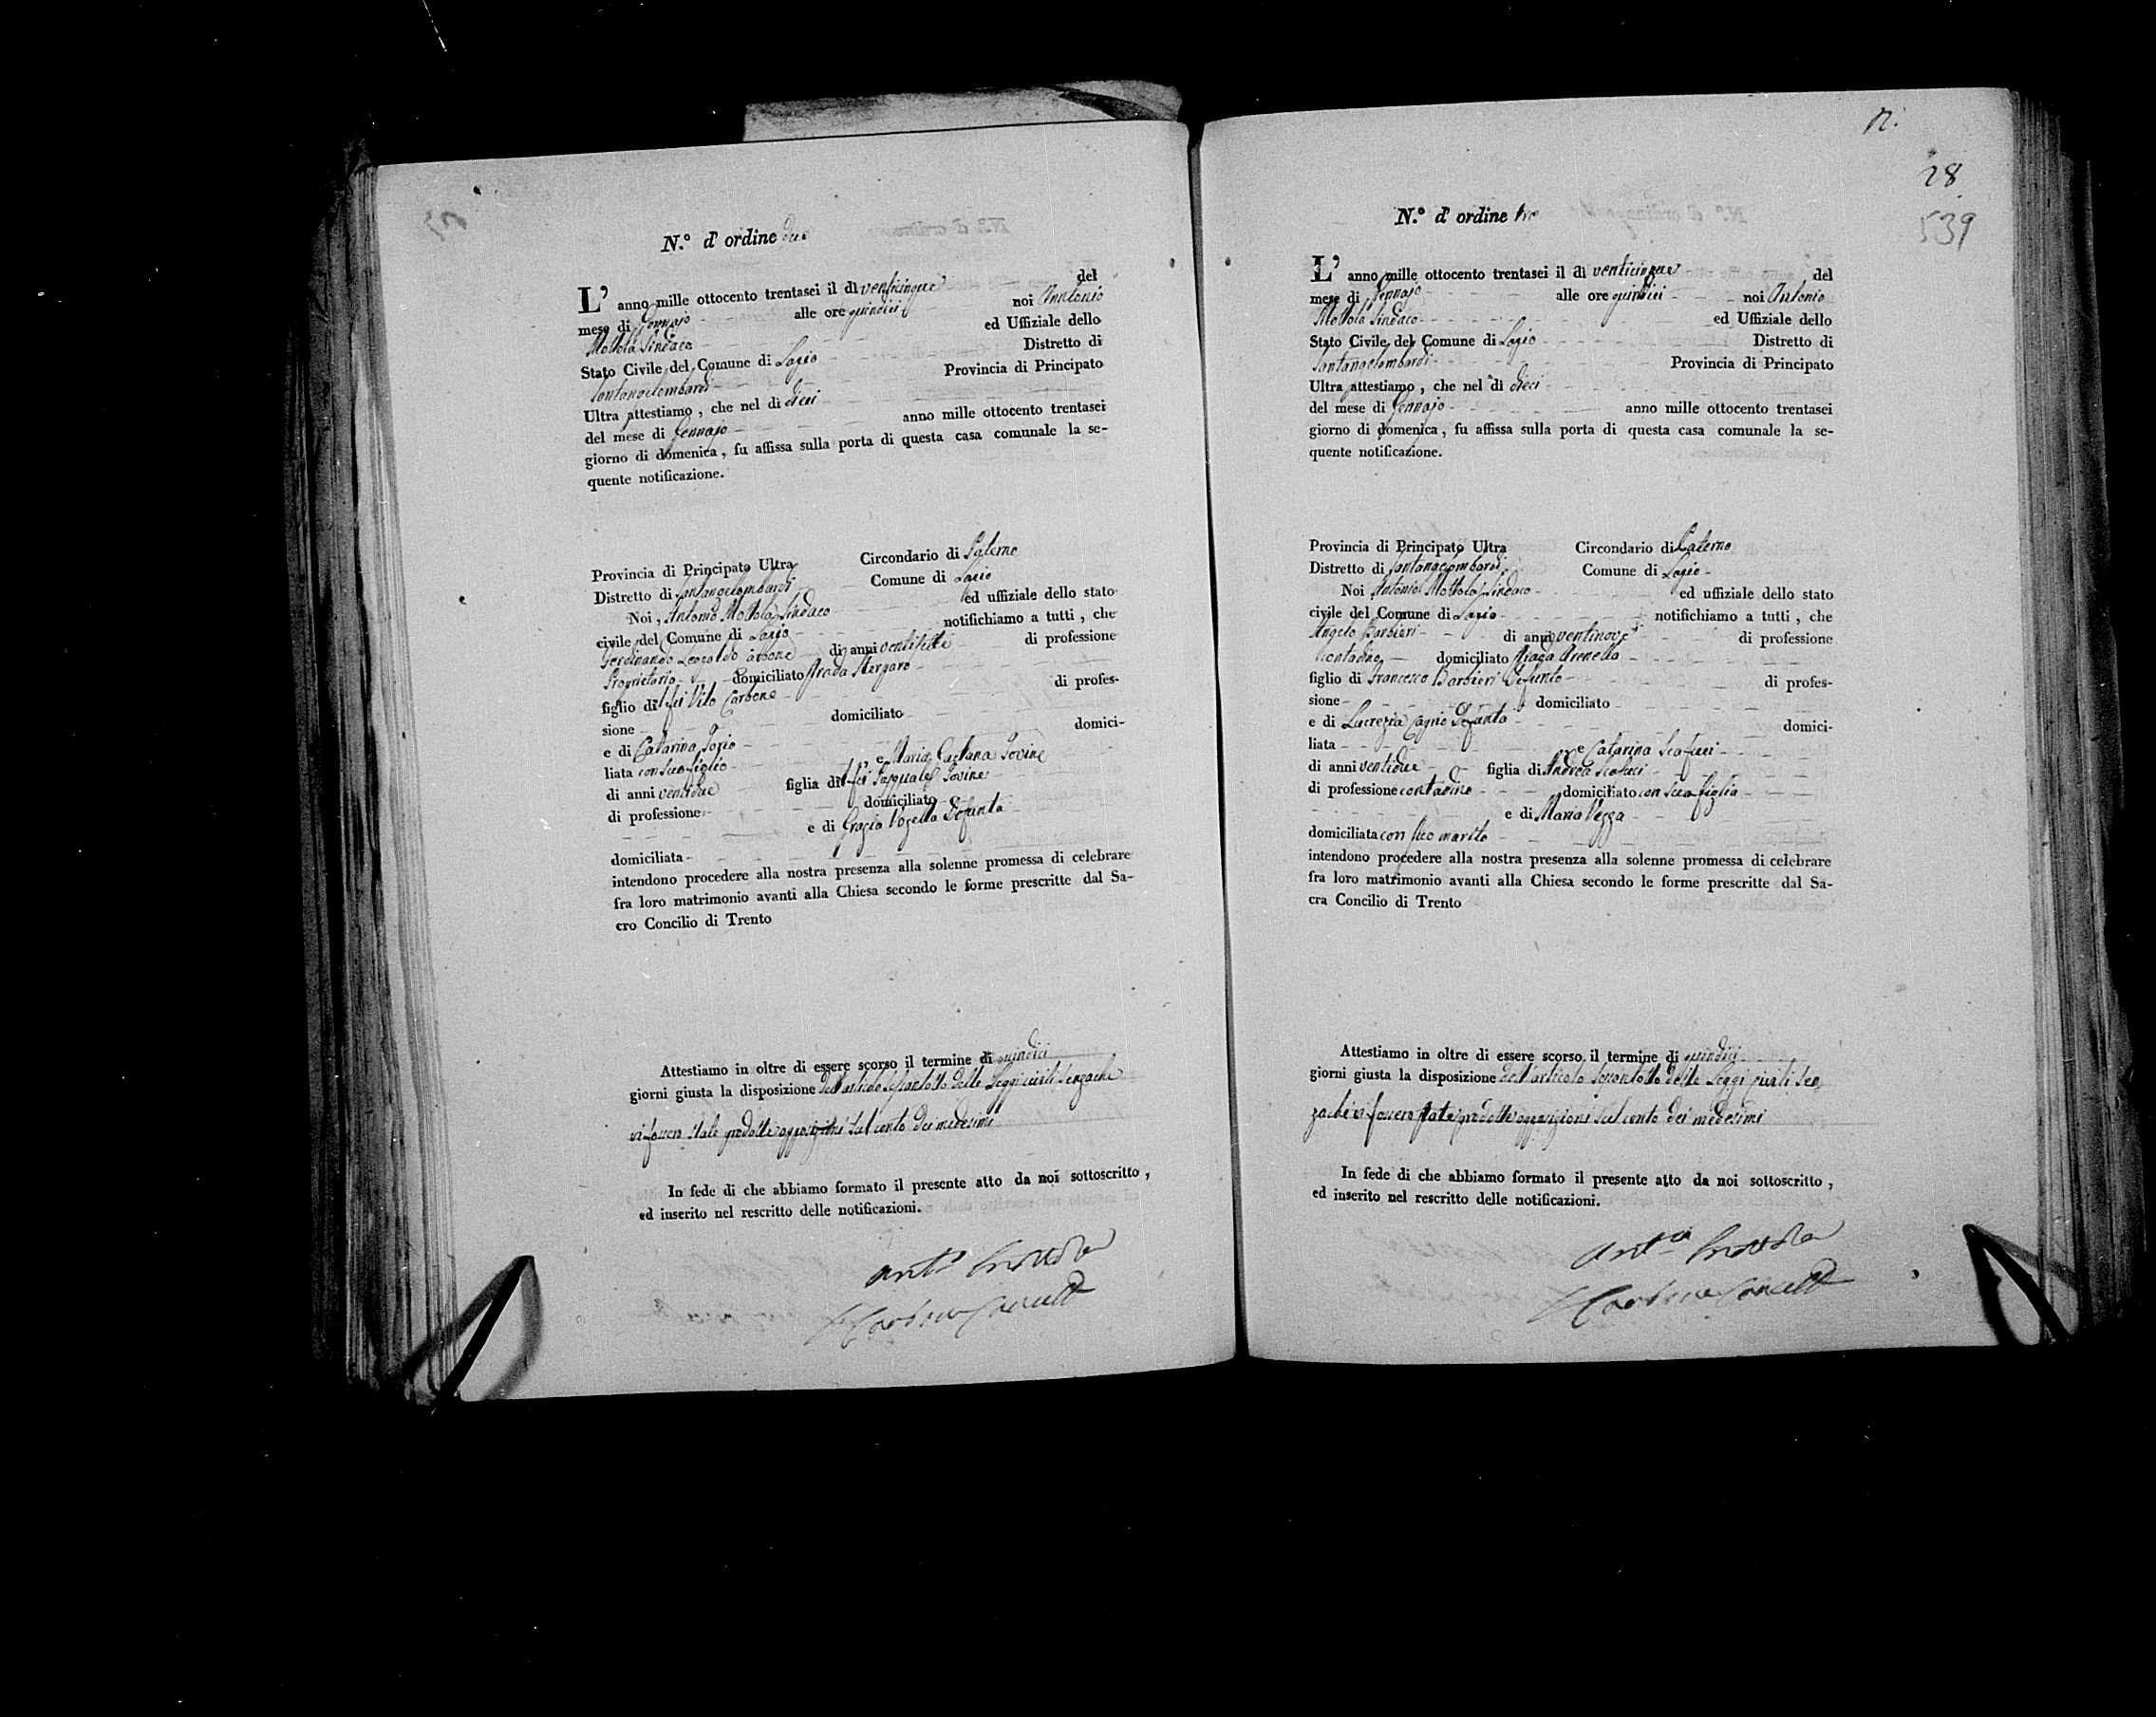 N.º d' ordine due
L' anno mille ottocento trentasei il dì venticinque del
mese di Gennajo alle ore quindici noi Antonio
Mottola Sindaco ed Uffiziale dello
Stato Civile del Comune di Lapio Distretto di
Santangelombardi Provincia di Principato
Ultra attestiamo, che nel dì dieci
del mese di Gennajo anno mille ottocento trentasei
giorno di domenica, fu affissa sulla porta di questa casa comunale la se-
quente notificazione.
Provincia di Principato Ultra Circondario di Paterno
Distretto di Santangelombardi Comune di Lapio
Noi, Antonio Mottola Sindaco ed uffiziale dello stato
civile del Comune di Lapio notifichiamo a tutti, che
Ferdinando Leopoldo Carbone di anni ventisette di professione
Proprietario domiciliato Strada
figlio di Vito Carbone di profes-
sione domiciliato
e di Catarina domici-
liata con suo figlio e Maria Gaetana Iovine
di anni ventidue figlia di Pasquale Iovine
di professione domiciliato
e di Grazia Defunta
domiciliata
intendono procedere alla nostra presenza alla solenne promessa di celebrare
fra loro matrimonio avanti alla Chiesa secondo le forme prescritte dal Sa-
cro Concilio di Trento
Attestiamo in oltre di essere scorso il termine di quindici
giorni giusta la disposizione dell'articolo sessantotto delle Leggi civili senzache
vi fossero state prodotte opposizioni sul conto dei medesimi
In fede di che abbiamo formato il presente atto da noi sottoscritto,
ed inserito nel rescritto delle notificazioni.
Ant.º Mottola
28
539
N.º d' ordine tre
L' anno mille ottocento trentasei il dì venticinque del
mese di Gennajo alle ore quindici noi Antonio
Mottola Sindaco ed Uffiziale dello
Stato Civile del Comune di Lapio Distretto di
Santangelombardi Provincia di Principato
Ultra attestiamo, che nel dì dieci
del mese di Gennajo anno mille ottocento trentasei
giorno di domenica, fu affissa sulla porta di questa casa comunale la se-
quente notificazione.
Provincia di Principato Ultra Circondario di Paterno
Distretto di Santangelombardi Comune di Lapio
Noi Antonio Mottola Sindaco ed uffiziale dello stato
civile del Comune di Lapio notifichiamo a tutti, che
Angelo Barbieri di anni ventinove di professione
Contadino domiciliato Strada Arenella
figlio di Francesco Barbieri Defunto di profes-
sione domiciliato
e di Lucrezia Defunta domici-
liata e Catarina Scofaci
di anni ventidue figlia di Andrea
di professione contadino domiciliato con sua figlia
e di Maria
domiciliata con suo marito
intendono procedere alla nostra presenza alla solenne promessa di celebrare
fra loro matrimonio avanti alla Chiesa secondo le forme prescritte dal Sa-
cra Concilio di Trento
Attestiamo in oltre di essere scorso il termine di quindici
giorni giusta la disposizione dell'articolo sessantotto delle Leggi civili sen
zache vi fossero state prodotte opposizioni sul conto dei medesimi
In fede di che abbiamo formato il presente atto da noi sottoscritto,
ed inserito nel rescritto delle notificazioni.
Ant.º Mottola